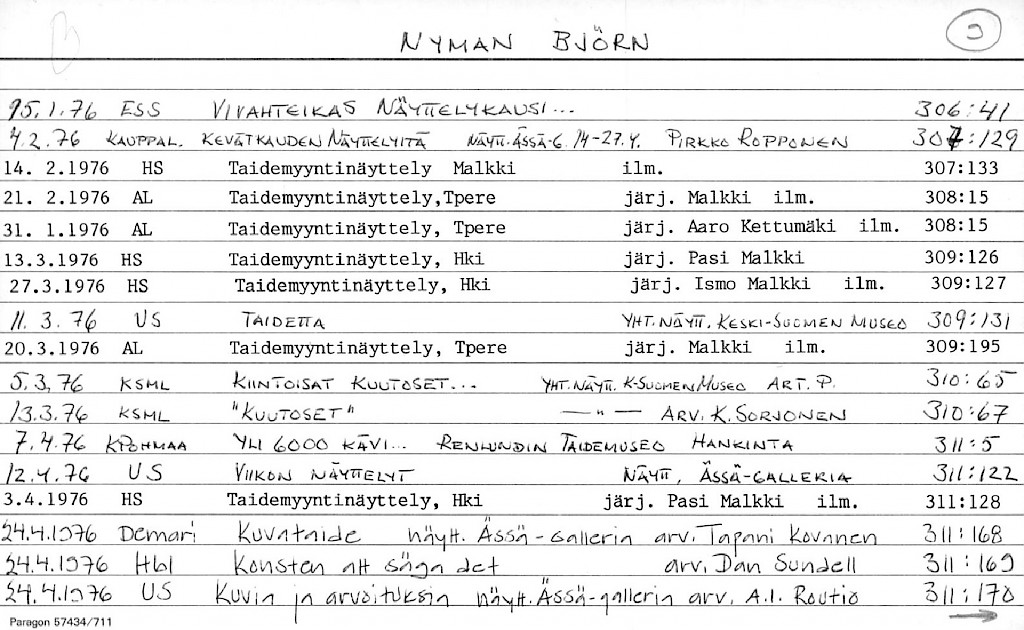 NYMAN BJÖRN 9
15.1.76 ESS VIVAHTEIKAS NÄYTTELYKAUSI... 306:41
4.2.76 KAUPPAL. KEVÄTKAUDEN NÄYTTELYITÄ NÄYTT. ÄSSÄ-G 14-27.4. PIRKKO ROPPONEN 307:129
14. 2.1976 HS Taidemyyntinäyttely Malkki ilm. 307:133
21. 2.1976 AL Taidemyyntinäyttely,Tpere järj. Malkki ilm. 308:15
31. 1.1976 AL Taidemyyntinäyttely, Tpere järj. Aaro Kettumäki ilm. 308:15
13.3.1976 HS Taidemyyntinäyttely, Hki järj. Pasi Malkki 309:126
27.3.1976 HS Taidemyyntinäyttely, Hki järj. Ismo Malkki ilm. 309:127
11. 3. 76 US TAIDETTA YHT.NÄYTT. KESKI-SUOMEN MUSEO 309:131
20.3.1976 AL Taidemyyntinäyttely, Tpere järj. Malkki ilm. 309:195
5.3.76 KSML KIINTOISAT KUUTOSET... YHT.NÄYTT. K-SUOMEN MUSEO ART. P. 310:65
13.3.76 KSML "KUUTOSET" — " — ARV. K. SORJONEN 310:67
7.4.76 KPOHMAA YLI 6000 KÄVI... RENLUNDIN TAIDEMUSEO HANKINTA 311:5
12.4.76 US VIIKON NÄYTTELYT NÄYTT. ÄSSÄ-GALLERIA 311:122
3.4.1976 HS Taidemyyntinäyttely, Hki järj. Pasi Malkki ilm. 311:128
24.4.1976 Demari Kuvataide näytt. Ässä-galleria arv. Tapani Kovanen 311:168
24.4.1976 Hbl Konsten att säga det arv. Dan Sundell 311:169
24.4.1976 US Kuvia ja arvoituksia näytt. Ässä-galleria arv. A.I. Routio 311:170
Paragon 57434/711